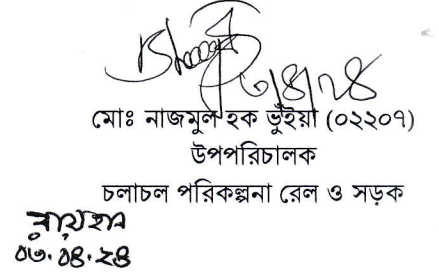 ৩/৪/২৪
মোঃ নাজমুল হক ভুঁইয়া (০২২০৭)
উপপরিচালক
চলাচল পরিকল্পনা রেল ও সড়ক
রায়হান
০৩.০৪.২৪